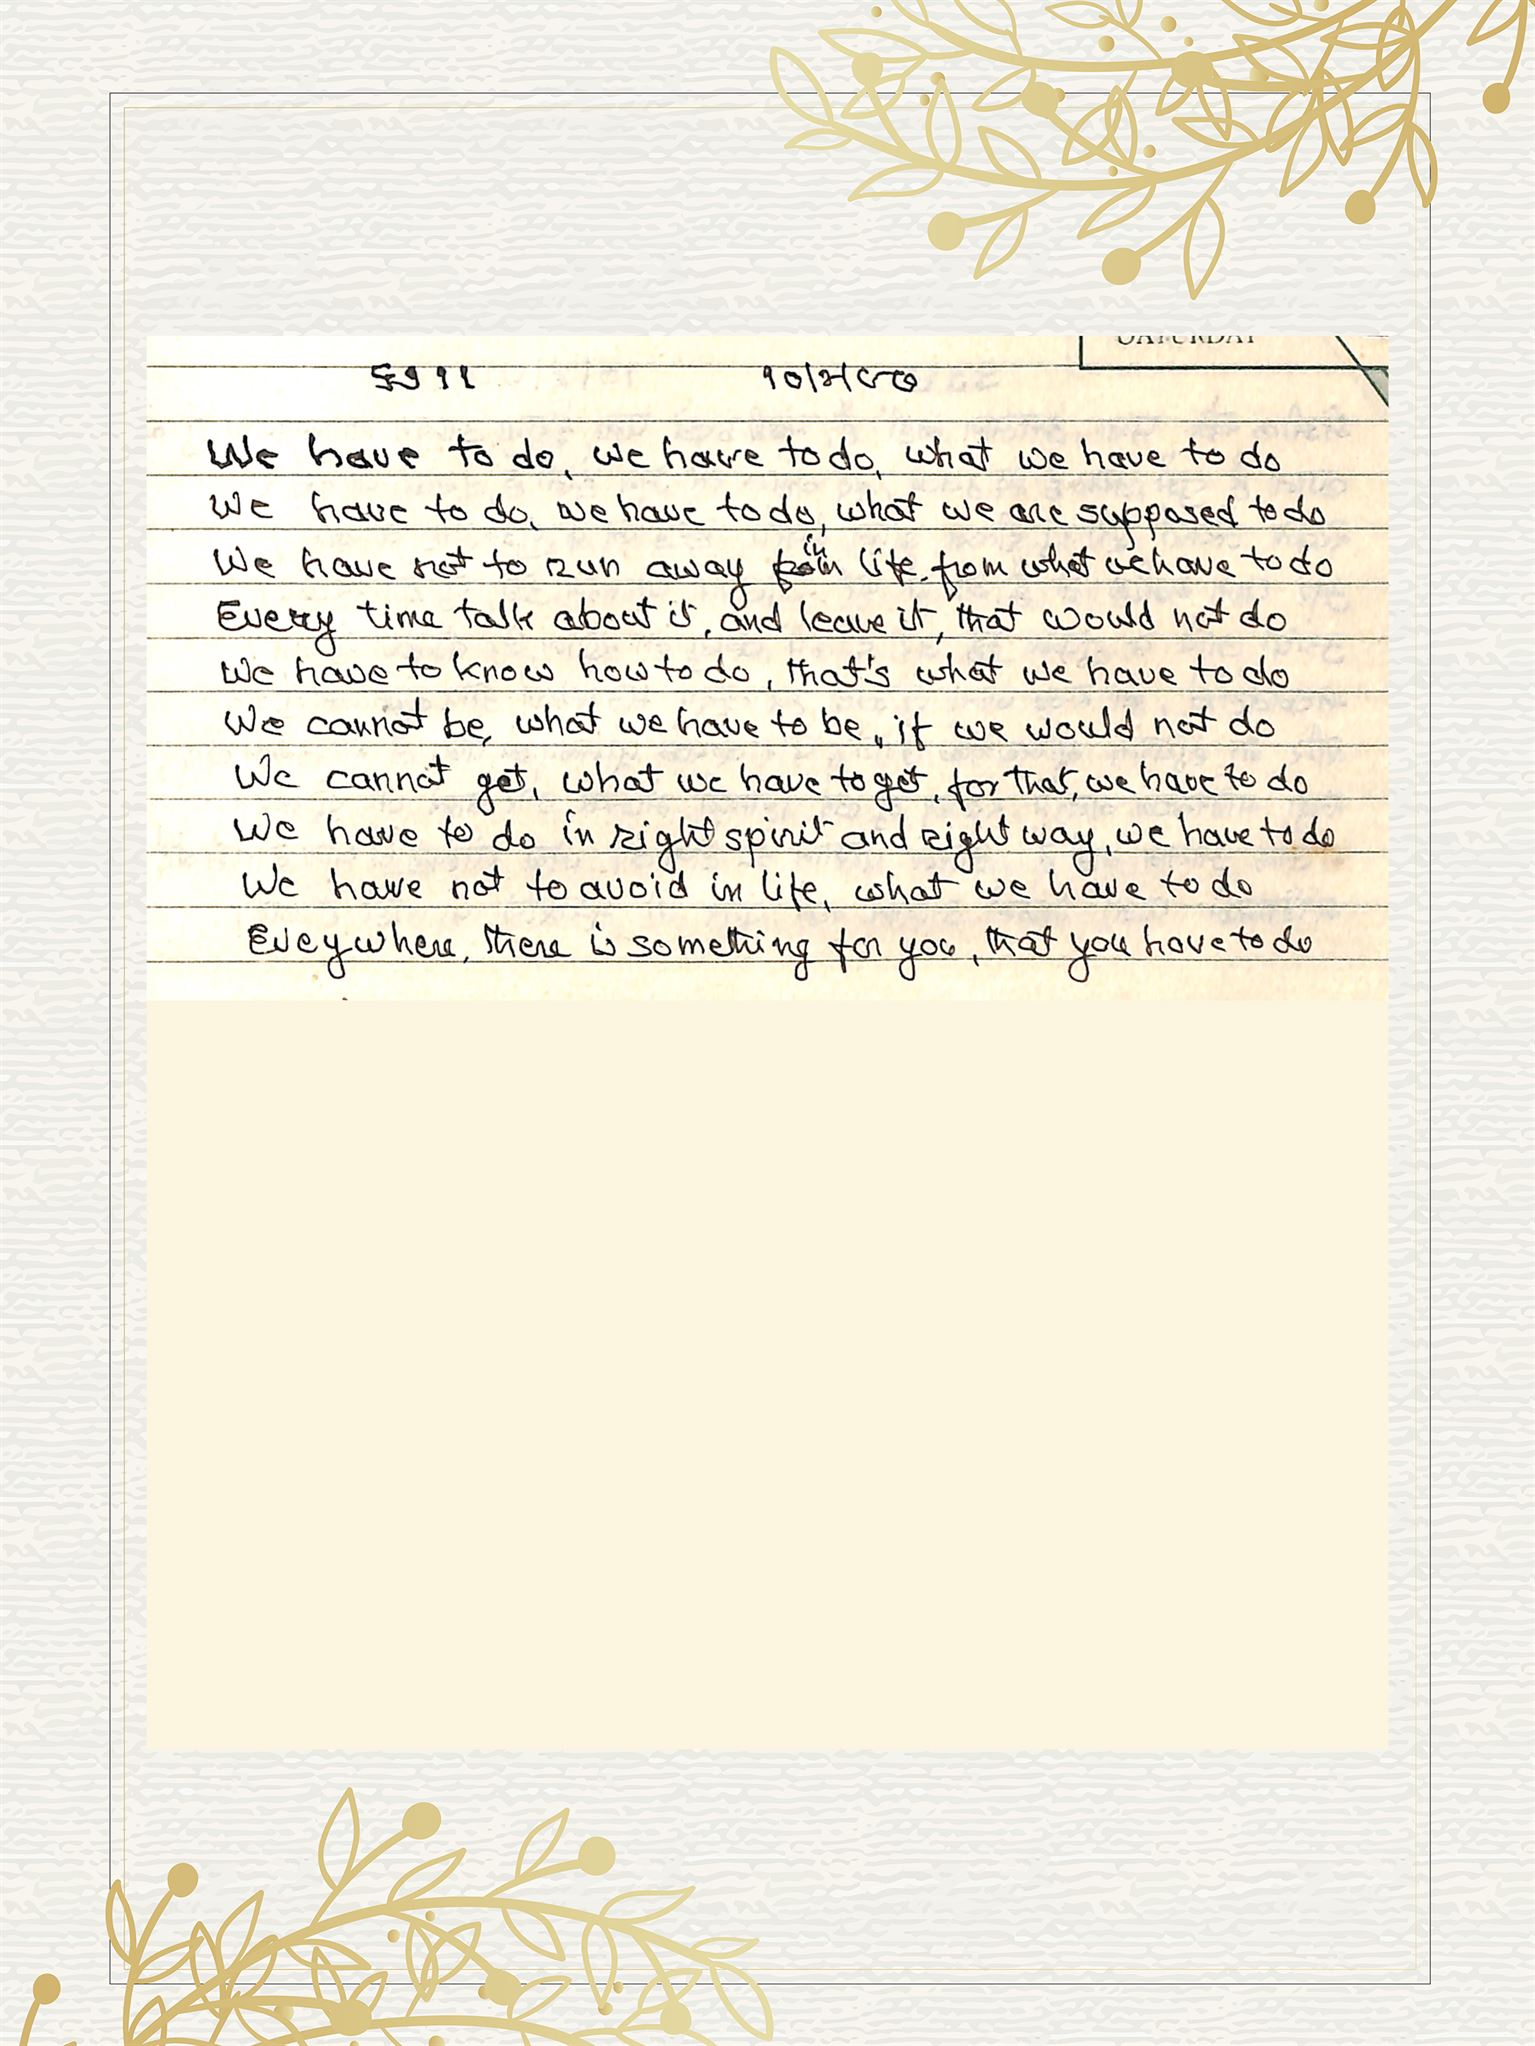 SATURDAY
We have to do, we have to do, what we have to do
We have to do, we have to do, what we are supposed to do
We have not to run away in life, from what we have to do
Every time talk about it, and leave it, that would not do
We have to know how to do, that's what we have to do
We cannot be, what we have to be, if we would not do
We cannot get, what we have to get, for that, we have to do
We have to do in right spirit and right way, we have to do
We have not to avoid in life, what we have to do
Eveywhere, there is something for you, that you have to do